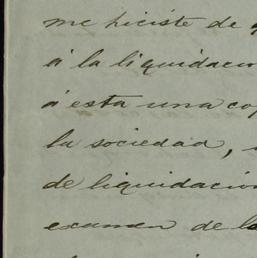 me hiciste de
á la liquidacio
á esta una co
la sociedad,
de liquidacion
examen de la